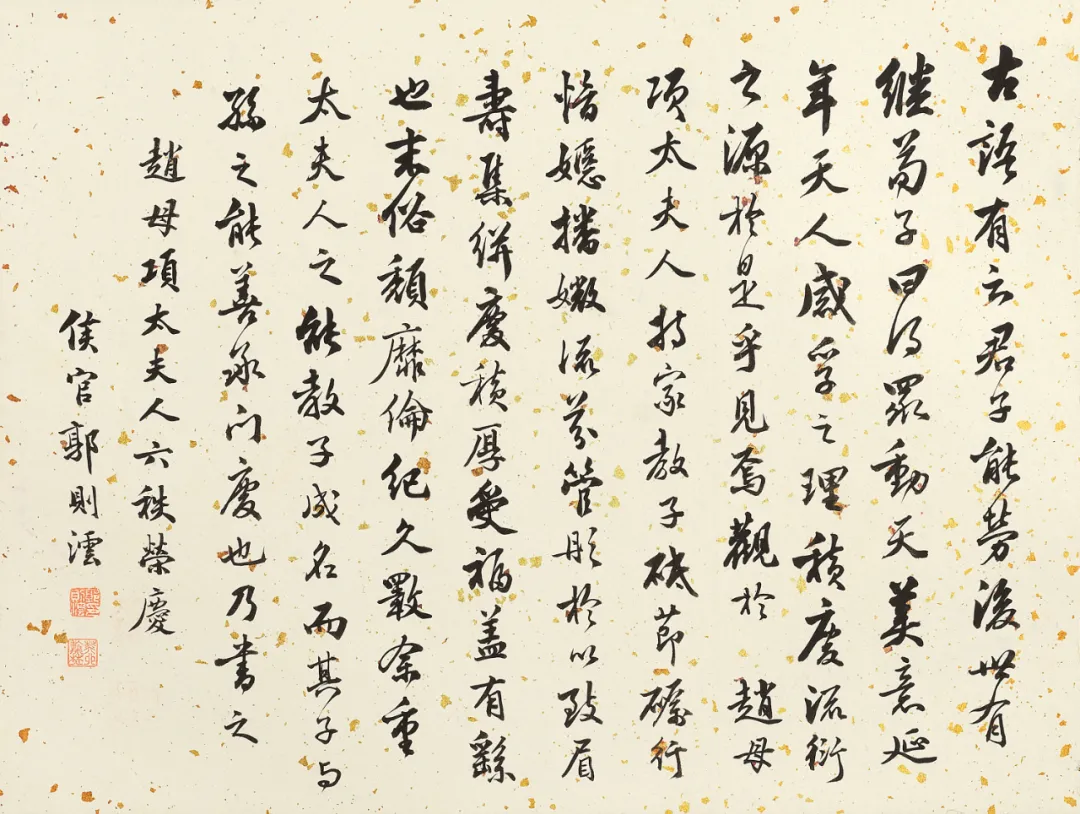 古語有云君子能勞後世有
继荀子曰得眾動天美意延
年天人感孚之理積慶流衍
之源於是乎見焉觀於趙母
項太夫人持家教子砥节礪行
愔嫕播媺流芬管彤於以致眉
壽集絣慶積厚受福盖有繇
也末俗頹靡倫紀久斁余重
太夫人之能教子成名而其子与
孫之能善承门慶也乃書之
趙母項太夫人六秩榮慶
侯官郭則澐